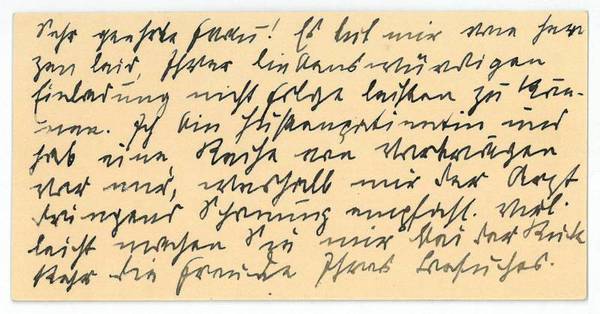 Sehr geehrte Frau! Es tut mir von her
zen leid, Ihrer liebenswürdigen
Einladung nicht Folge leisten zu kön-
nen. Ich bin Hustenpatientin und
hab eine Reihe von Vorträgen
vor mir, weshalb mir der Arzt
dringend Schonung empfahl. Viel-
leicht machen Sie mir bei der Rück
kehr die Freude Ihres Besuches.